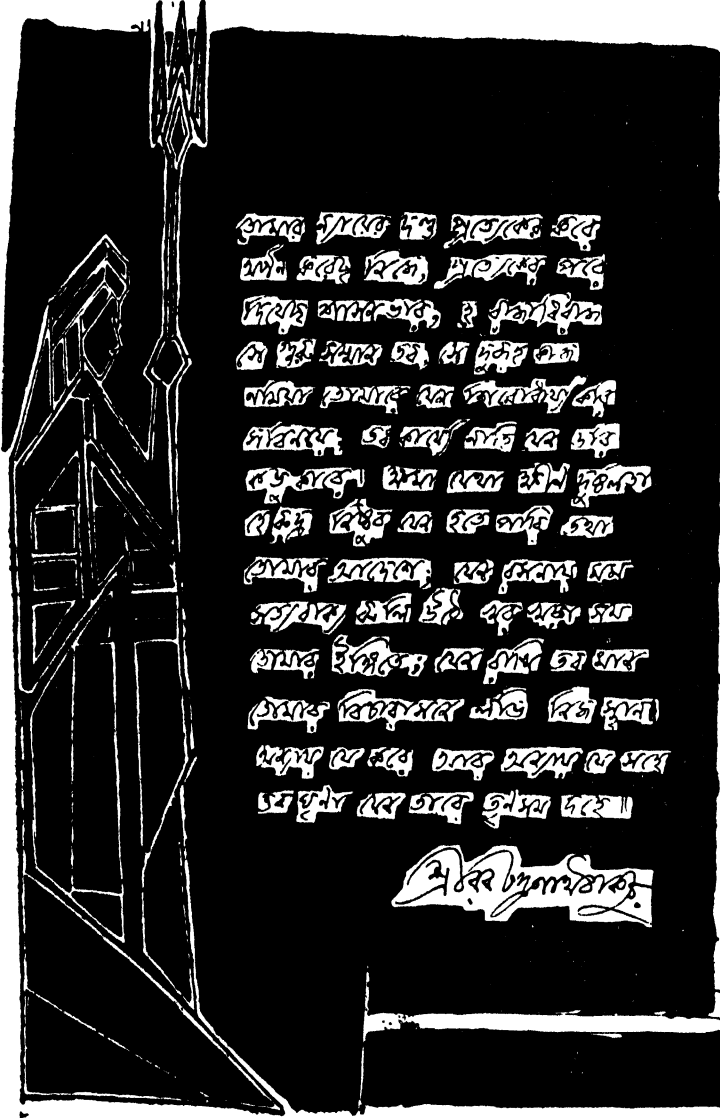 তোমার ন্যায়ের দণ্ড প্রত্যেকের করে
অর্পণ করেছ নিজে, প্রত্যেকের পরে
দিয়েছ শাসনভার, হে রাজাধিরাজ
সে গুরু সম্মান তব, সে দুরূহ কাজ
নমিয়া তোমারে যেন শিরোধার্য্য করি
সবিনয়ে; তব কার্য্যে নাহি যেন ডরি
কভু কারে। ক্ষমা যেথা ক্ষীণ দুর্ব্বলতা
হে রুদ্র নিষ্ঠুর যেন হতে পারি তথা
তোমার আদেশে; যেন রসনায় মম
সত্যবাক্য জ্বলি উঠে খর খড়্গ সম
তোমার ইঙ্গিতে; যেন রাখি তব মান
তোমার বিচারাসনে লভি নিজ স্থান।
অন্যায় যে করে আর অন্যায় যে সহে
তব ঘৃণা যেন তারে তৃণসম দহে॥
শ্রীরবীন্দ্রনাথ ঠাকুর